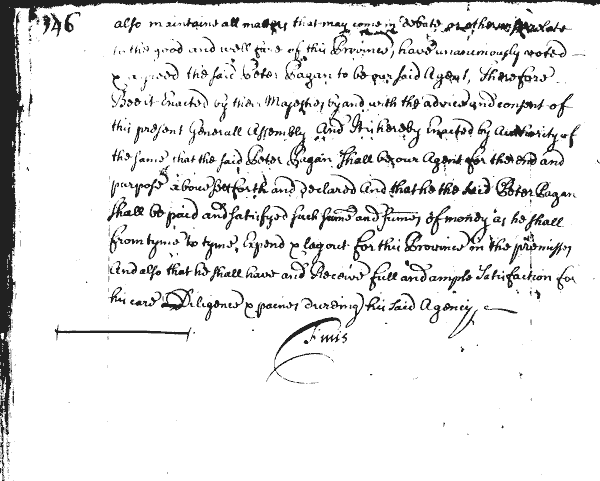 346
also maintaine all matters that may come in debate or otherwise relate
to the good and well fare of this Province, have unanimously voted
& agreed the said Peter Pagan to be our said Agent, Therefore
Bee it Enacted by their Majesties by and with the advice and consent of
this present Generall Assembly And It is hereby Enacted by Authority of
the same that the said Peter Pagan Shall be our Agent for the end and
purpose above Sett forth and declared And that he the said Peter Pagan
shall be paid and satisfyed such sume and sumes of money as he shall
from tyme to tyme, Expend & lay out for this Province in the premisses
And also that he shall have and Receive full and ample Satisfaction for
his care Diligence & paines dureing his said Agency
Finis